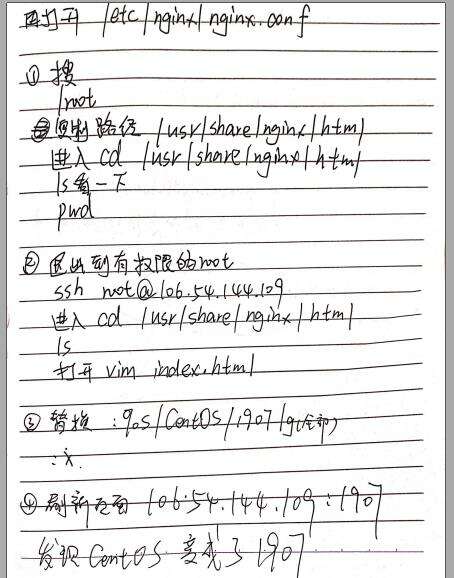 打开 /etc/nginx/nginx.conf
① 搜
/root
复制路径 /usr/share/nginx/html
进入 cd /usr/share/nginx/html
ls看一下
pwd
② 退出到有权限的root
ssh root@106.54.144.109
进入 cd /usr/share/nginx/html
ls
打开 vim index.html
③ 替换 :%s/CentOS/1907/g(全部)
:x
④ 刷新页面 106.54.144.109:1907
发现 CentOS 变成了 1907